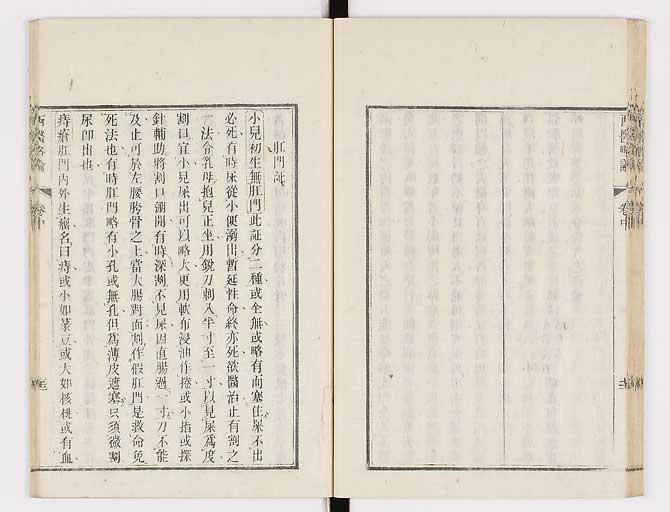 西醫略論
卷中
肛門証
小兒初生無肛門此証分二種或全無或略有而塞住屎不出
必死有時屎從小便溺出暫延性命終亦死欲醫治止有割之
一法令乳母抱兒正坐用銳刀刺入半寸至一寸以見屎為度
割口宜小見屎出可以略大更用軟布浸油作捲或小指或探
針輔助將割口溺開有時深割不見屎因直腸過一寸刀不能
及止可於左腰胯骨之上當大腸對面割作假肛門是救命免
死法也有時肛門略有小孔或無孔但為薄皮遮塞只須微割
屎即出也
痔瘡肛門內外生瘡名曰痔或小如菉豆或大如核桃或有血
西醫略論
卷中